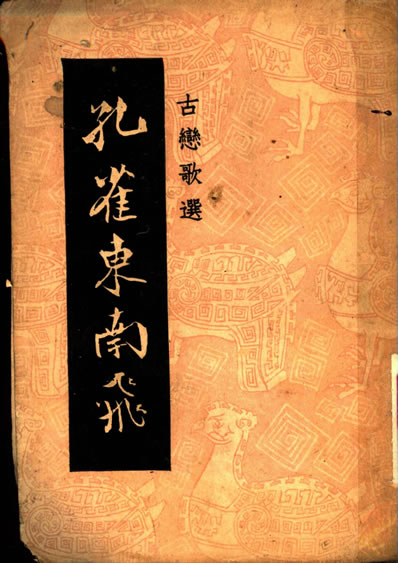 古戀歌選
孔雀東南飛